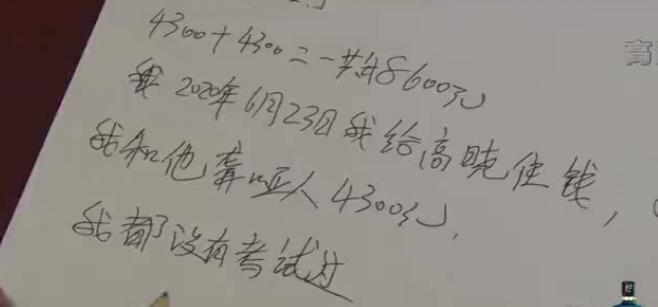 4300+4300=一共8600元
我2020年6月23日我给高晓佳钱,
我和他龚哑人4300元,
我都没有考试过
高